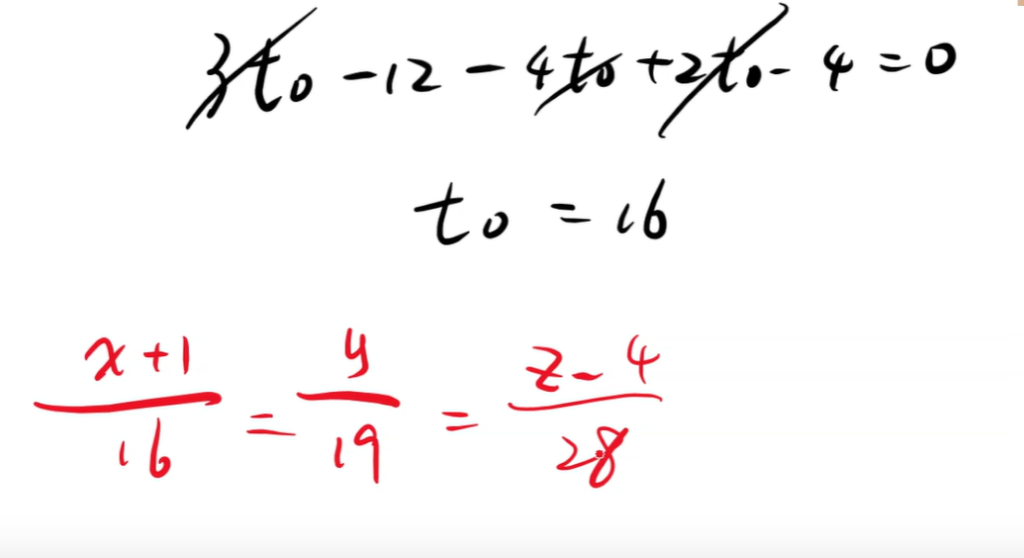 3t₀ - 12 - 4t₀ + 2t₀ - 4 = 0
t₀ = 16
x+1/16 = y/19 = z-4/28